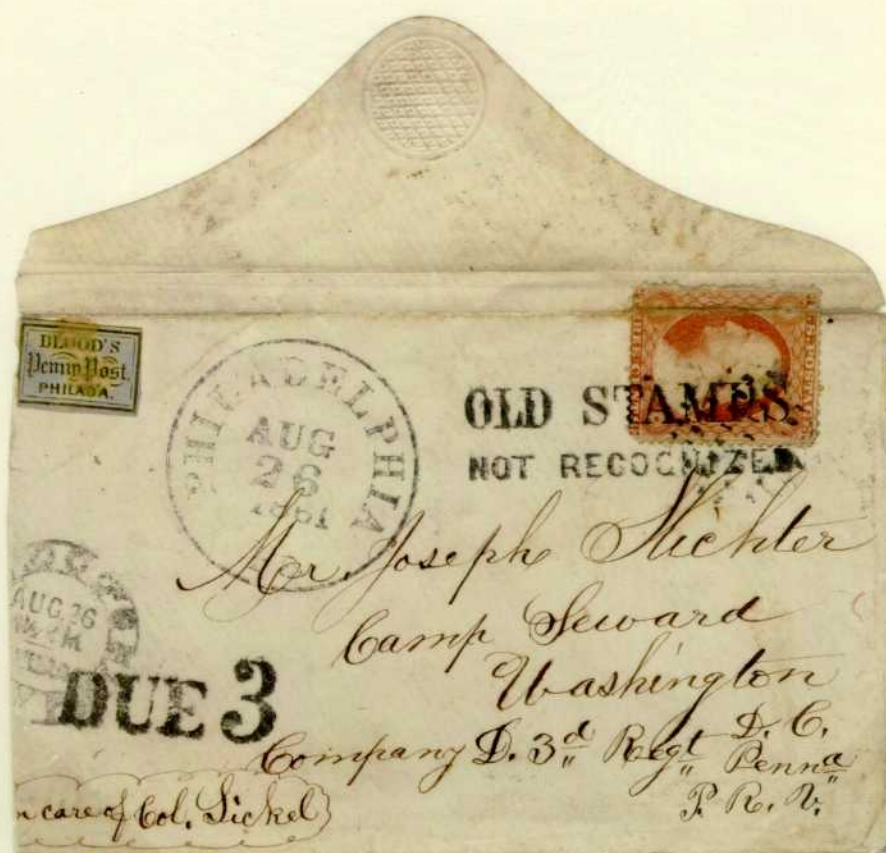 BLOOD'S
Penny Post.
PHILADA.
PHILADELPHIA
AUG
26
1861
OLD STAMPS
NOT RECOGNIZED
AUG 26
DUE 3
Mr. Joseph Stichter
Camp Seward
Washington
D. C.
Company D. 3d Regt Penna
P. R. V.
care of Col. Sickel